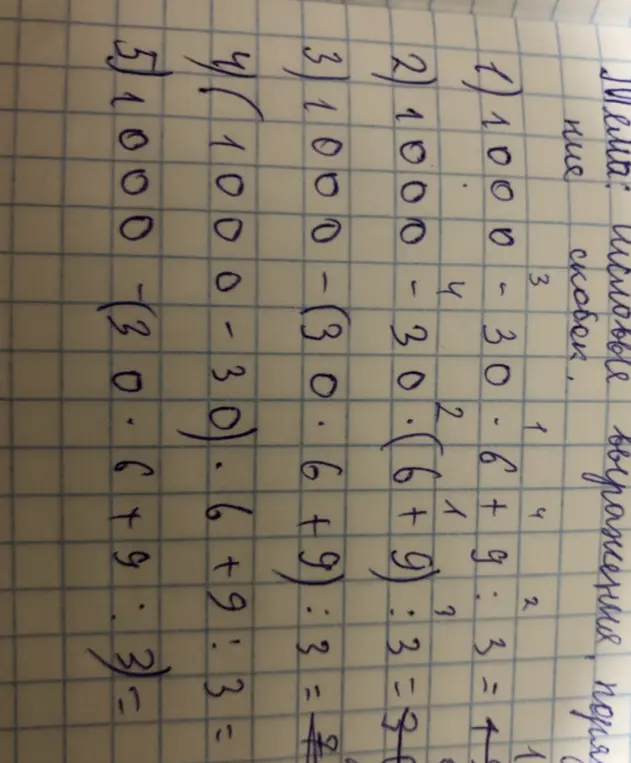 Тема: числовые выражения, поря
ние скобок.
3 1 4 2
1) 1000 - 30 · 6 + 9 : 3 =
4 2 1 3
2) 1000 - 30 · (6 + 9) : 3 =
3) 1000 - (30 · 6 + 9) : 3 =
4) (1000 - 30) · 6 + 9 : 3 =
5) 1000 - (30 · 6 + 9 : 3) =